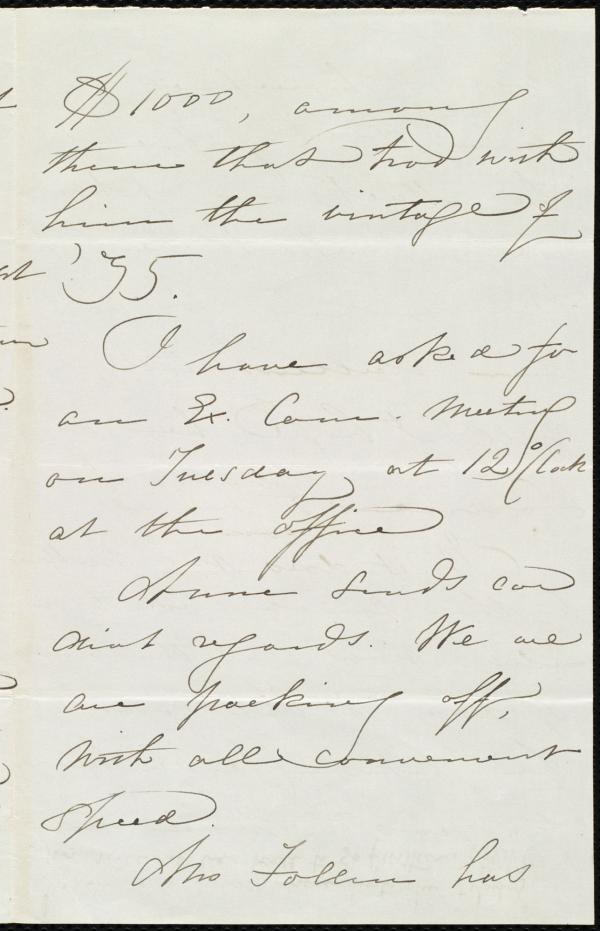 $1000, among
them that trod with
him the vintage of
'35.
I have asked for
an Ex. Com. Meeting
on Tuesday at 12 o'Clock
at the office
Anne sends cor
dial regards. We are
are packing off,
with all convenient
speed.
Mrs Follen has